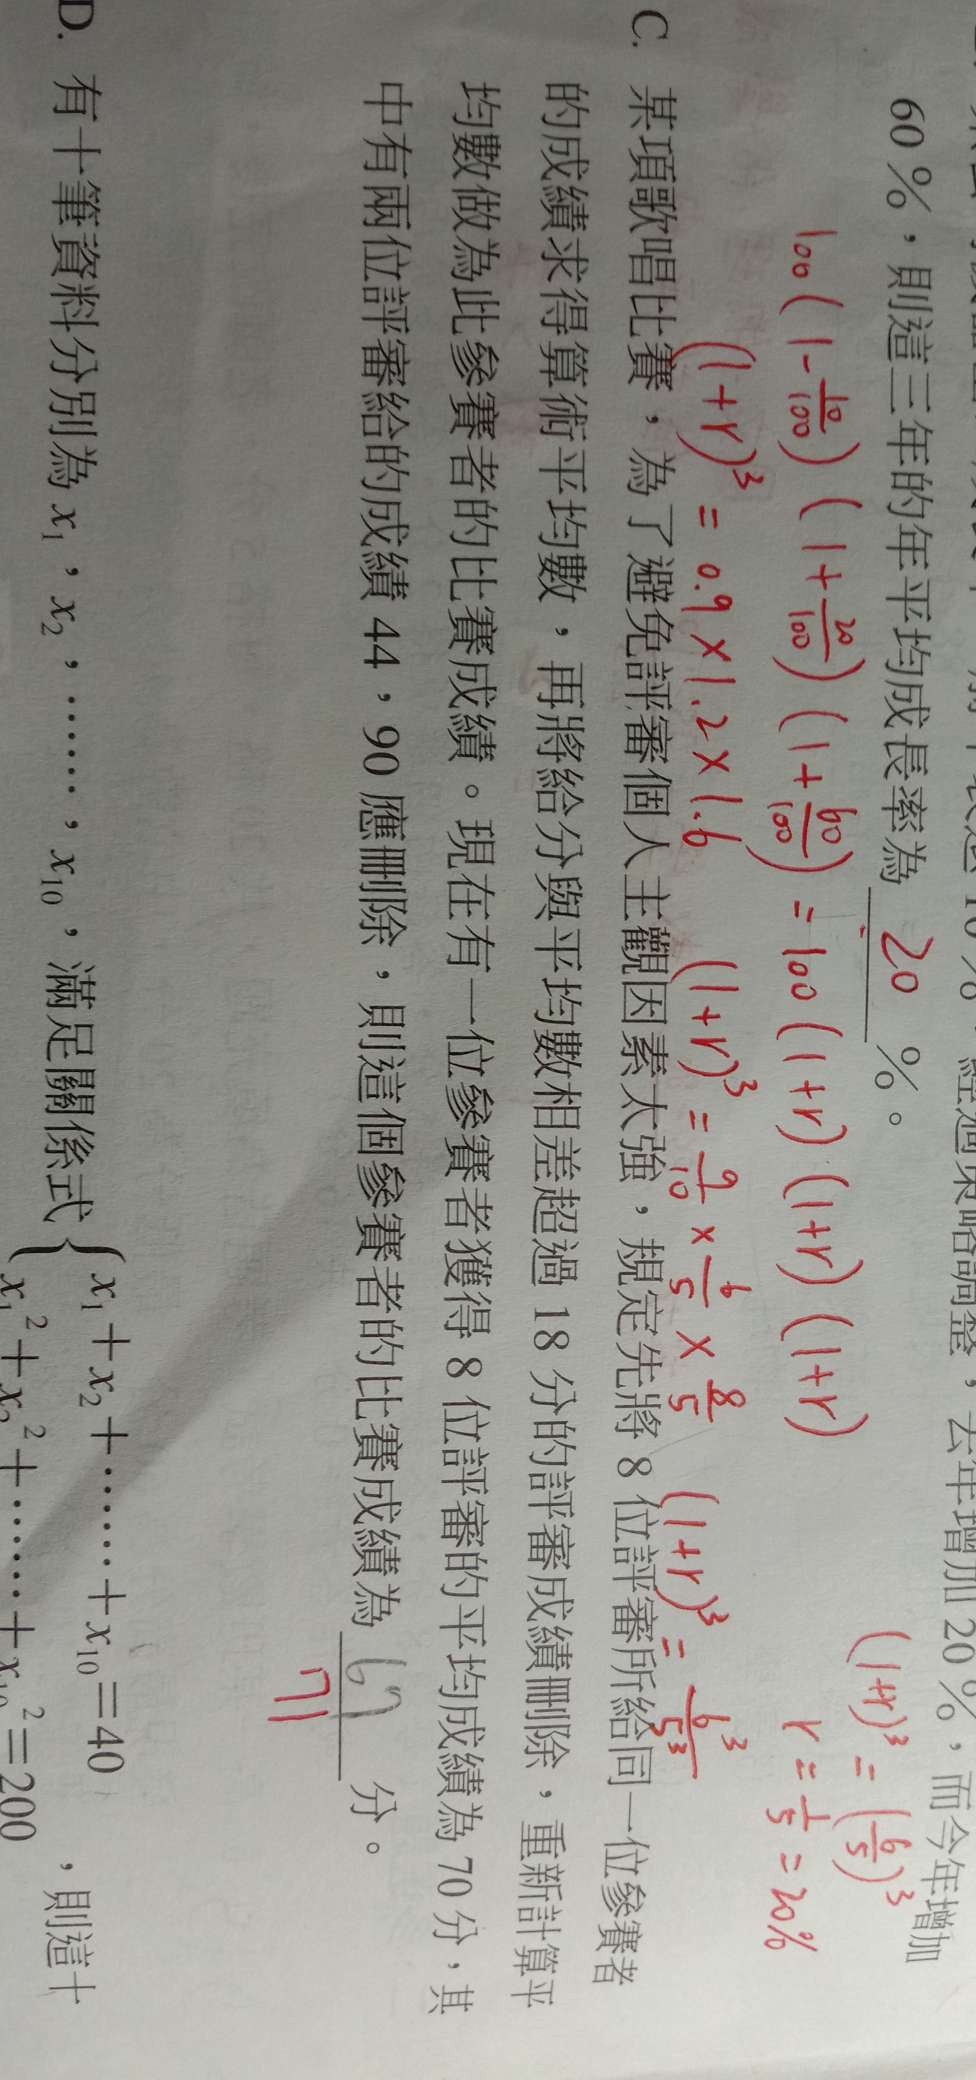 10%，經過策略調整，去年增加 20%，而今年增加
60%，則這三年的年平均成長率為 20 %。
(1+r)³ = (6/5)³
r = 1/5 = 20%
100(1-10/100)(1+20/100)(1+60/100) = 100(1+r)(1+r)(1+r)
(1+r)³ = 0.9×1.2×1.6 (1+r)³ = 9/10 × 6/5 × 8/5 (1+r)³ = 6³/5³
C. 某項歌唱比賽，為了避免評審個人主觀因素太強，規定先將 8 位評審所給同一位參賽者
的成績求得算術平均數，再將給分與平均數相差超過 18 分的評審成績刪除，重新計算平
均數做為此參賽者的比賽成績。現在有一位參賽者獲得 8 位評審的平均成績為 70 分，其
中有兩位評審給的成績 44，90 應刪除，則這個參賽者的比賽成績為 67 分。
71
D. 有十筆資料分別為 x₁，x₂，……，x₁₀，滿足關係式{x₁＋x₂＋……＋x₁₀＝40
x₁²＋x₂²＋……＋x₁₀²＝200
，則這十